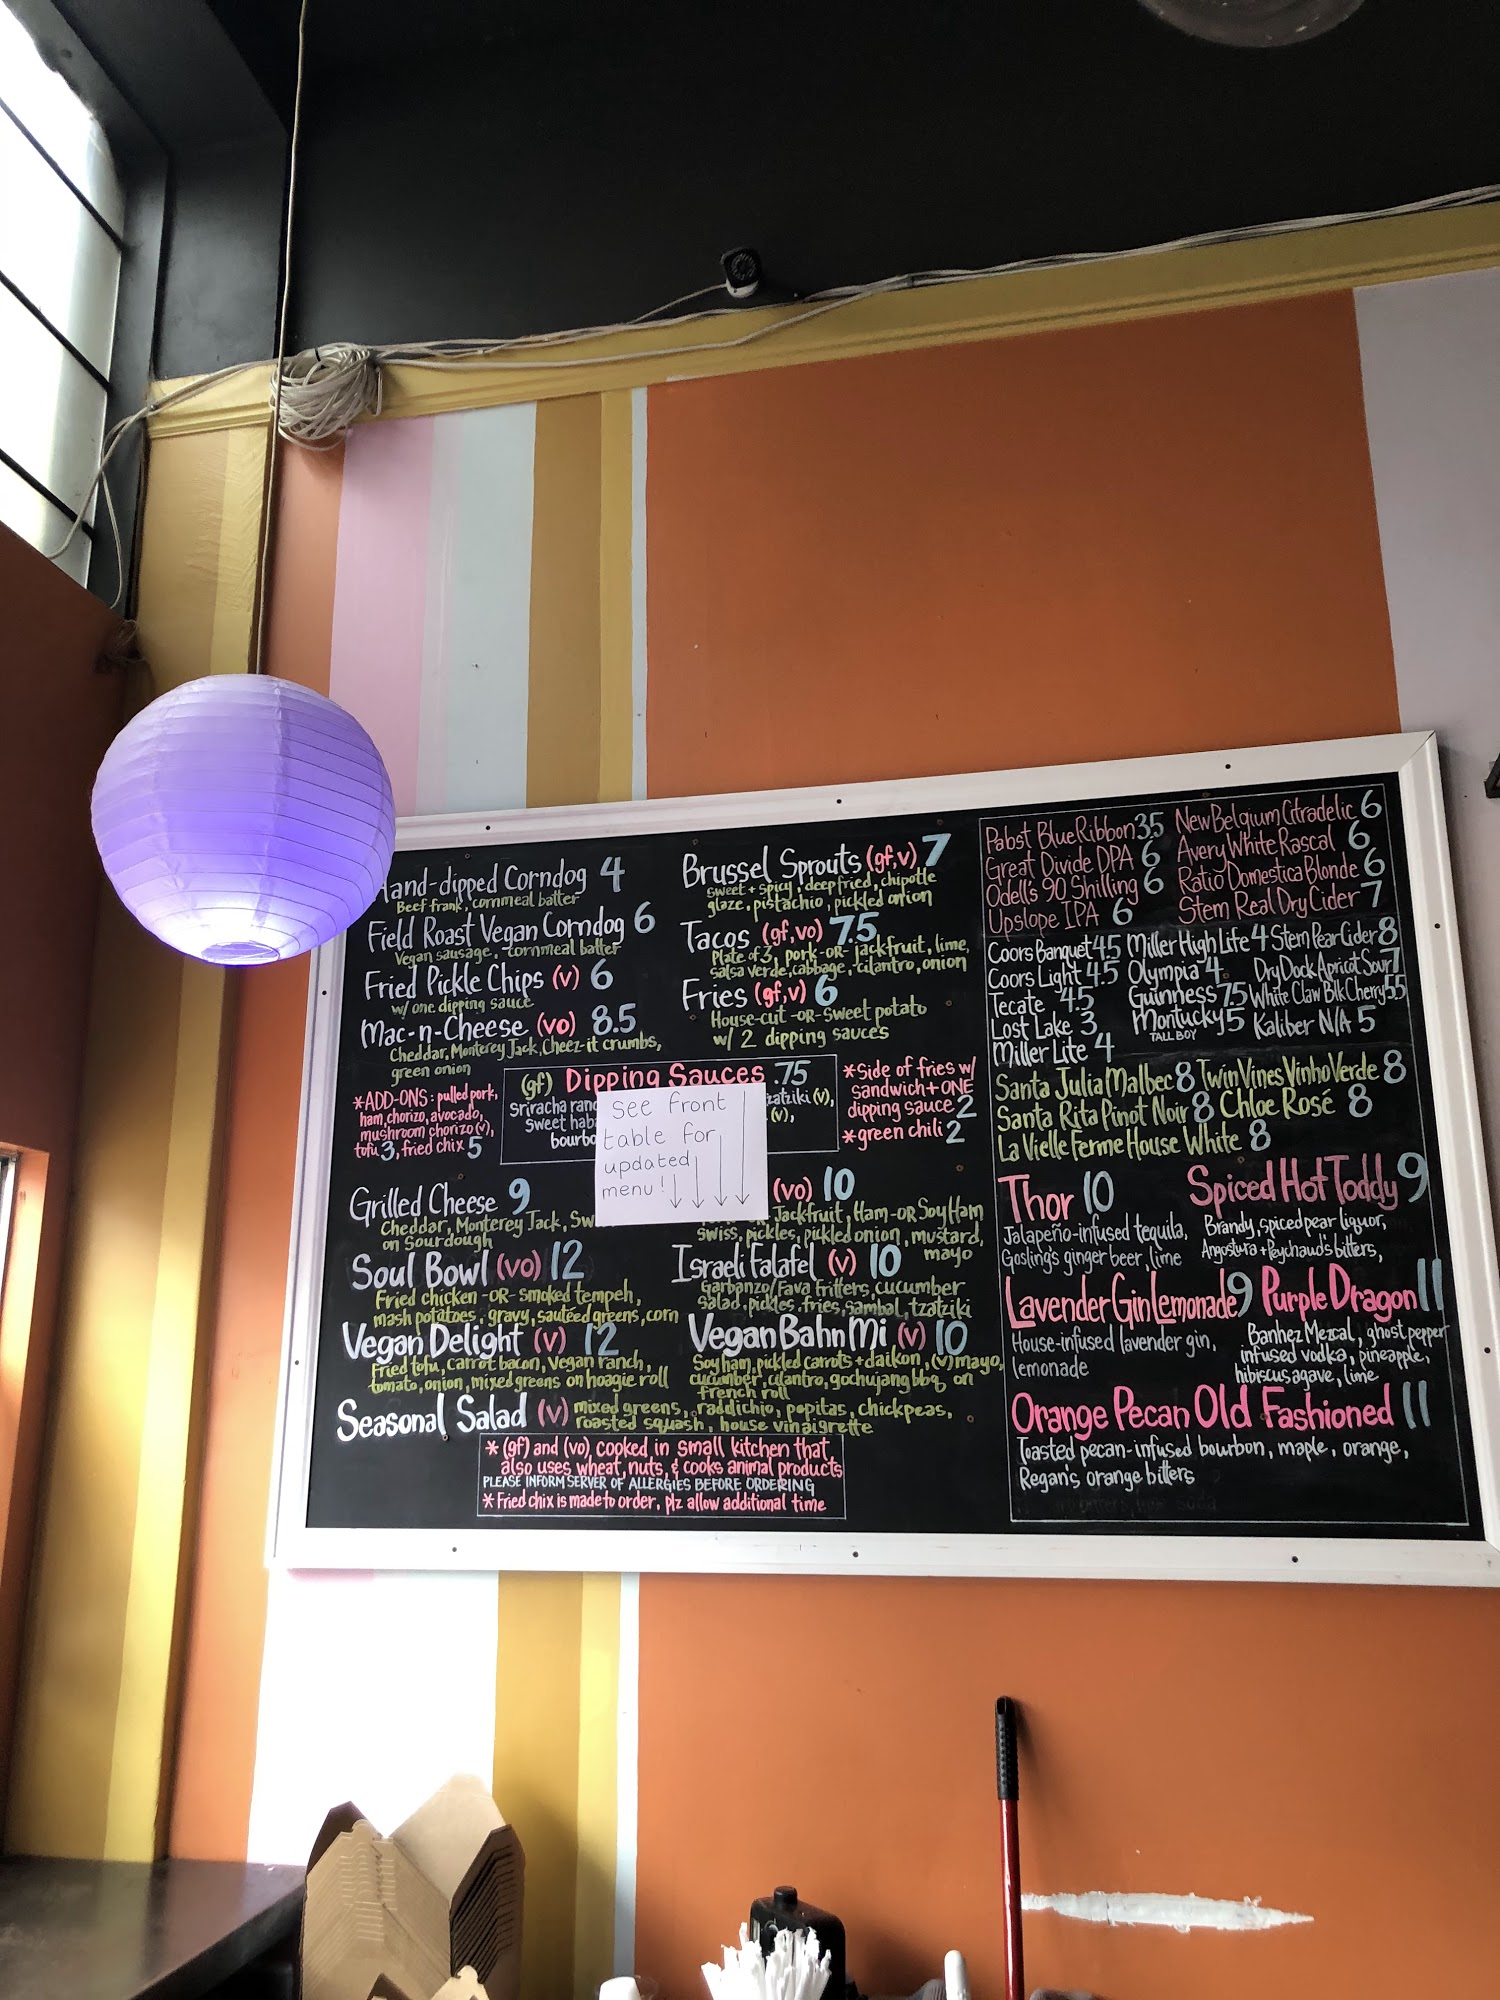 Hand-dipped Corndog 4
Beef frank, cornmeal batter
Field Roast Vegan Corndog 6
Vegan sausage, cornmeal batter
Fried Pickle Chips (v) 6
w/ one dipping sauce
Mac-n-Cheese (vo) 8.5
Cheddar, Monterey Jack, Cheez-it crumbs,
green onion
*ADD-ONS: pulled pork,
ham, chorizo, avocado,
mushroom chorizo (v),
tofu 3, fried chix 5
Brussel Sprouts (gf,v) 7
sweet + spicy, deep fried, chipotle
glaze, pistachio, pickled onion
Tacos (gf,vo) 7.5
Plate of 3, pork -OR- jackfruit, lime,
salsa verde, cabbage, cilantro, onion
Fries (gf,v) 6
House-cut -OR- sweet potato
w/ 2 dipping sauces
(gf) Dipping Sauces .75
Sriracha
Sweet
tzatziki (v),
(v),
*Side of fries w/
sandwich + ONE
dipping sauce 2
*green chili 2
See front
table for
updated
menu!
Grilled Cheese 9
Cheddar, Monterey Jack,
on Sourdough
Soul Bowl (vo) 12
Fried chicken -OR- smoked tempeh,
mash potatoes, gravy, sautéed greens, corn
Vegan Delight (v) 12
Fried tofu, carrot bacon, vegan ranch,
tomato, onion, mixed greens on hoagie roll
(vo) 10
Jackfruit, Ham -OR Soy Ham
swiss, pickles, pickled onion, mustard,
mayo
Israeli Falafel (v) 10
Garbanzo/Fava fritters, cucumber
salad, pickles, fries, sambal, tzatziki
Vegan Bahn Mi (v) 10
Soy ham, pickled carrots + daikon, (v) mayo,
cucumber, cilantro, gochujang bbq on
French roll
Seasonal Salad (v) mixed greens, raddichio, pepitas, chickpeas,
roasted squash, house vinaigrette
* (gf) and (vo) cooked in small kitchen that
also uses wheat, nuts, & cooks animal products
PLEASE INFORM SERVER OF ALLERGIES BEFORE ORDERING
* Fried chix is made to order, plz allow additional time
Pabst Blue Ribbon 3.5
Great Divide DPA 6
Odell's 90 Shilling 6
Upslope IPA 6
New Belgium Citradelic 6
Avery White Rascal 6
Ratio Domestica Blonde 6
Stem Real Dry Cider 7
Coors Banquet 4.5
Coors Light 4.5
Tecate 4.5
Lost Lake 3
Miller Lite 4
Miller High Life 4
Olympia 4
Guinness 7.5
Montucky 5
TALL BOY
Stem Pear Cider 8
Dry Dock Apricot Sour 7
White Claw Blk Cherry 5.5
Kaliber N/A 5
Santa Julia Malbec 8 Twin Vines Vinho Verde 8
Santa Rita Pinot Noir 8 Chloe Rosé 8
La Vielle Ferme House White 8
Thor 10
Jalapeño-infused tequila,
Gosling's ginger beer, lime
Spiced Hot Toddy 9
Brandy, spiced pear liquor,
Angostura + Peychaud's bitters,
Lavender Gin Lemonade 9
House-infused lavender gin,
lemonade
Purple Dragon 11
Banhez Mezcal, ghost pepper
infused vodka, pineapple,
hibiscus agave, lime
Orange Pecan Old Fashioned 11
Toasted pecan-infused bourbon, maple, orange,
Regan's orange bitters